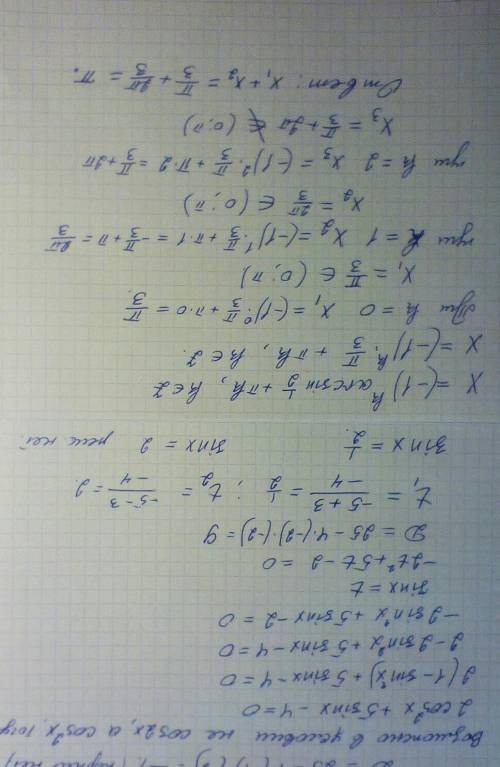 Возможно в условии не cos2x, а cos²x, тогда
2cos²x + 5sinx - 4 = 0
2(1 - sin²x) + 5sinx - 4 = 0
2 - 2sin²x + 5sinx - 4 = 0
-2sin²x + 5sinx - 2 = 0
sinx = t
-2t² + 5t - 2 = 0
D = 25 - 4·(-2)·(-2) = 9
t₁ = (-5+3)/(-4) = 1/2 ; t₂ = (-5-3)/(-4) = 2.
sinx = 1/2 sinx = 2 реш. нет.
X = (-1)ᵏ arcsin 1/2 + πk, k ∈ Z
X = (-1)ᵏ · π/3 + πk, k ∈ Z.
При k = 0 X₁ = (-1)⁰ · π/3 + π·0 = π/3.
X₁ = π/3 ∈ (0; π)
при k = 1 X₂ = (-1)¹ · π/3 + π·1 = -π/3 + π = 2π/3
X₂ = 2π/3 ∈ (0; π)
при k = 2 X₃ = (-1)² · π/3 + π·2 = π/3 + 2π
X₃ = π/3 + 2π ∉ (0; π)
Ответ: X₁ + X₂ = π/3 + 2π/3 = π.